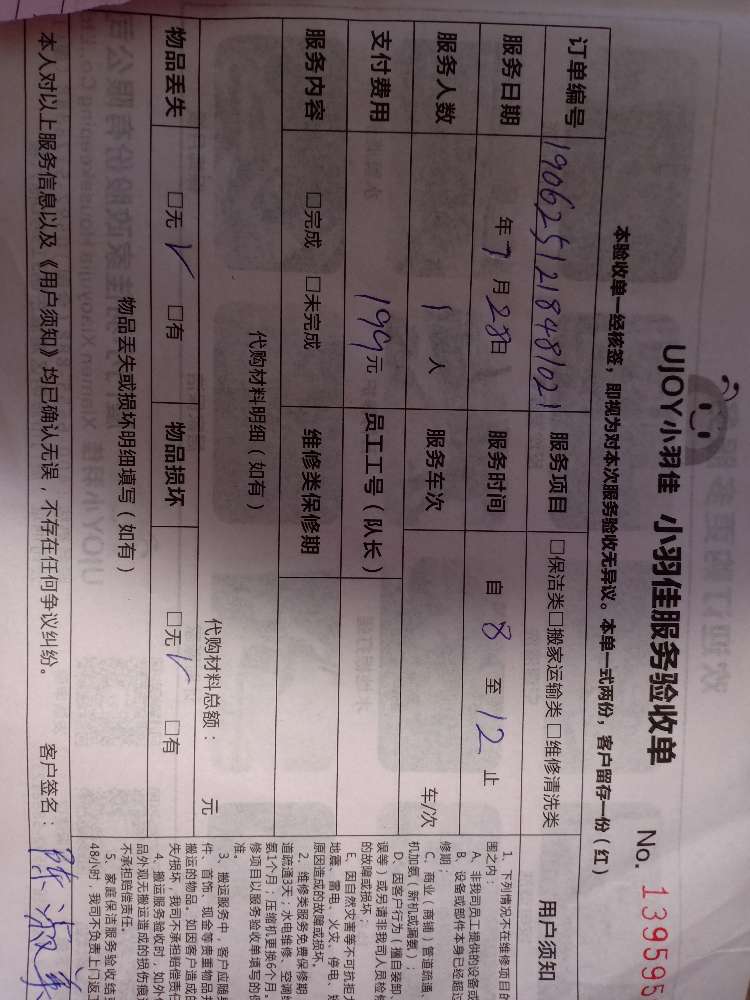 UJOY小羽佳 小羽佳服务验收单
No. 139595
本验收单一经核签，即视为对本次服务验收无异议。本单一式两份，客户留存一份（红）
订单编号 1906251218481021 服务项目 □保洁类□搬家运输类□维修清洗类
服务日期 年7月28日 服务时间 自 8 至 12 止
服务人数 1 人 服务车次 车/次
支付费用 199元 员工工号（队长）
服务内容 □完成 □未完成 维修类保修期
代购材料明细（如有） 代购材料总额： 元
物品丢失 □无 √ □有 物品损坏 □无 √ □有
物品丢失或损坏明细填写（如有）
本人对以上服务信息以及《用户须知》均已确认无误，不存在任何争议纠纷。 客户签名：陈淑
用户须知
1、下列情况不在维修项目的
围之内：
A、非我司员工提供的设备或
B、设备或部件本身已经超过
修期；
C、商业（商铺）管道疏通、
机加氨（新机或漏氨）；
D、因客户行为（擅自装卸
误等）或另请非我司人员检修
的故障或损坏；
E、因自然灾害等不可抗拒力
地震、雷电、火灾、停电、
原因造成的故障或损坏。
2、维修类服务免费保修期
道疏通3天；水电维修、空调
氨1个月；压缩机更换6个月。
修项目以服务验收单填写的保
准。
3、搬运服务中，客户应随身
件、首饰、现金等贵重物品并
搬运的物品。如因客户造成的
失/损坏，我司不承担赔偿责任
4、搬运服务验收时，如外包
品外观无搬运造成的损伤痕迹
不承担赔偿责任。
5、家庭保洁服务验收结束
48小时，我司不负责上门返工